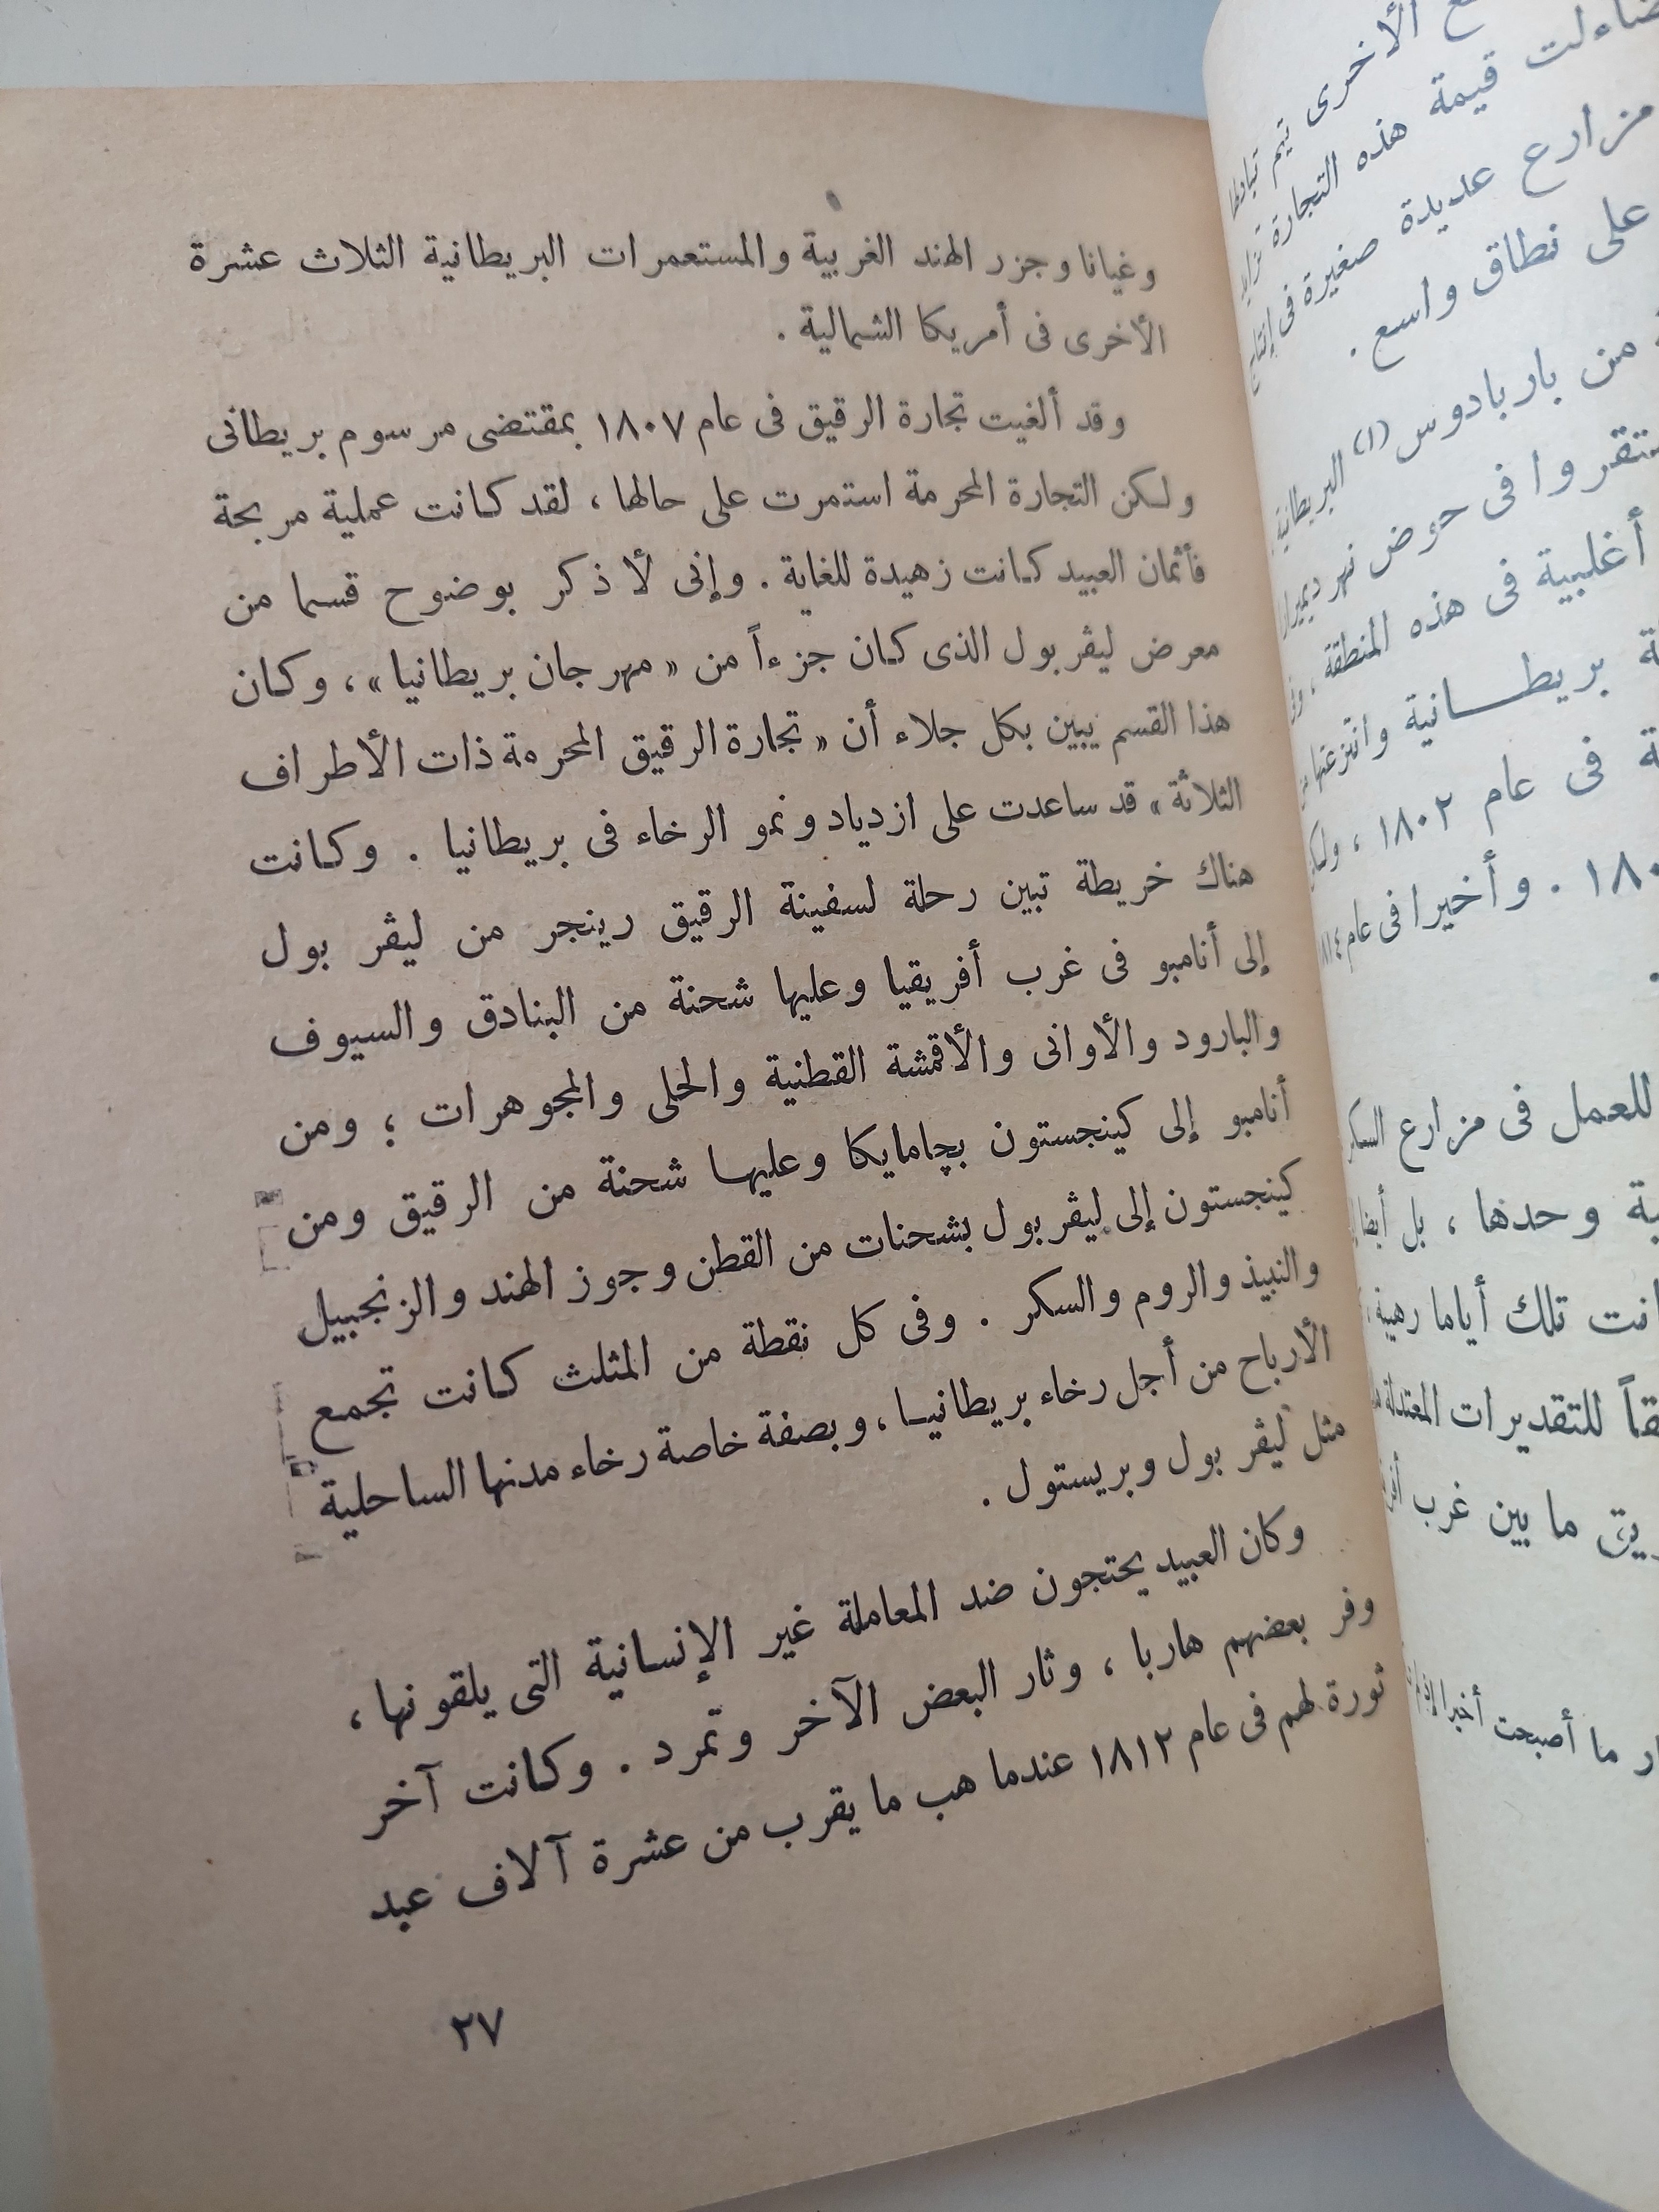 وغيانا وجزر الهند الغربية والمستعمرات البريطانية الثلاث عشرة
الأخرى فى أمريكا الشمالية .
وقد ألغيت تجارة الرقيق فى عام ١٨٠٧ بمقتضى مرسوم بريطانى
ولكن التجارة المحرمة استمرت على حالها ، لقد كانت عملية مربحة
فأثمان العبيد كانت زهيدة للغاية . وإنى لأذكر بوضوح قسما من
معرض ليڤربول الذى كان جزءاً من « مهرجان بريطانيا » ، وكان
هذا القسم يبين بكل جلاء أن « تجارة الرقيق المحرمة ذات الأطراف
الثلاثة » قد ساعدت على ازدياد ونمو الرخاء فى بريطانيا . وكانت
هناك خريطة تبين رحلة لسفينة الرقيق رينجر من ليڤربول
إلى أنامبو فى غرب أفريقيا وعليها شحنة من البنادق والسيوف
والبارود والأوانى والأقمشة القطنية والحلى والمجوهرات ؛ ومن
أنامبو إلى كينجستون بچامايكا وعليها شحنة من الرقيق ومن
كينجستون إلى ليڤربول بشحنات من القطن وجوز الهند والزنجبيل
والنبيذ والروم والسكر . وفى كل نقطة من المثلث كانت تجمع
الأرباح من أجل رخاء بريطانيا ، وبصفة خاصة رخاء مدنها الساحلية
مثل ليڤربول وبريستول .
وكان العبيد يحتجون ضد المعاملة غير الإنسانية التى يلقونها ،
وفر بعضهم هاربا ، وثار البعض الآخر وتمرد . وكانت آخر
ثورة لهم فى عام ١٨١٢ عندما هب ما يقرب من عشرة آلاف عبد
٢٧
الأخرى تيم تبادلها
قيمة هذه التجارة
مزارع عديدة صغيرة فى إنتاج
على نطاق واسع .
من باربادوس (١) البريطانية
فى حوض نهر ديميرارا
أغلبية فى هذه المنطقة
بريطانية وانتزعتها من
فى عام ١٨٠٢ ،
. وأخيرا فى عام ١٨١٤
للعمل فى مزارع السكر
وحدها ، بل أيضا
تلك أياما رهيبة
للتقديرات المعتدلة
ما بين غرب
ما أصبحت أخيرا